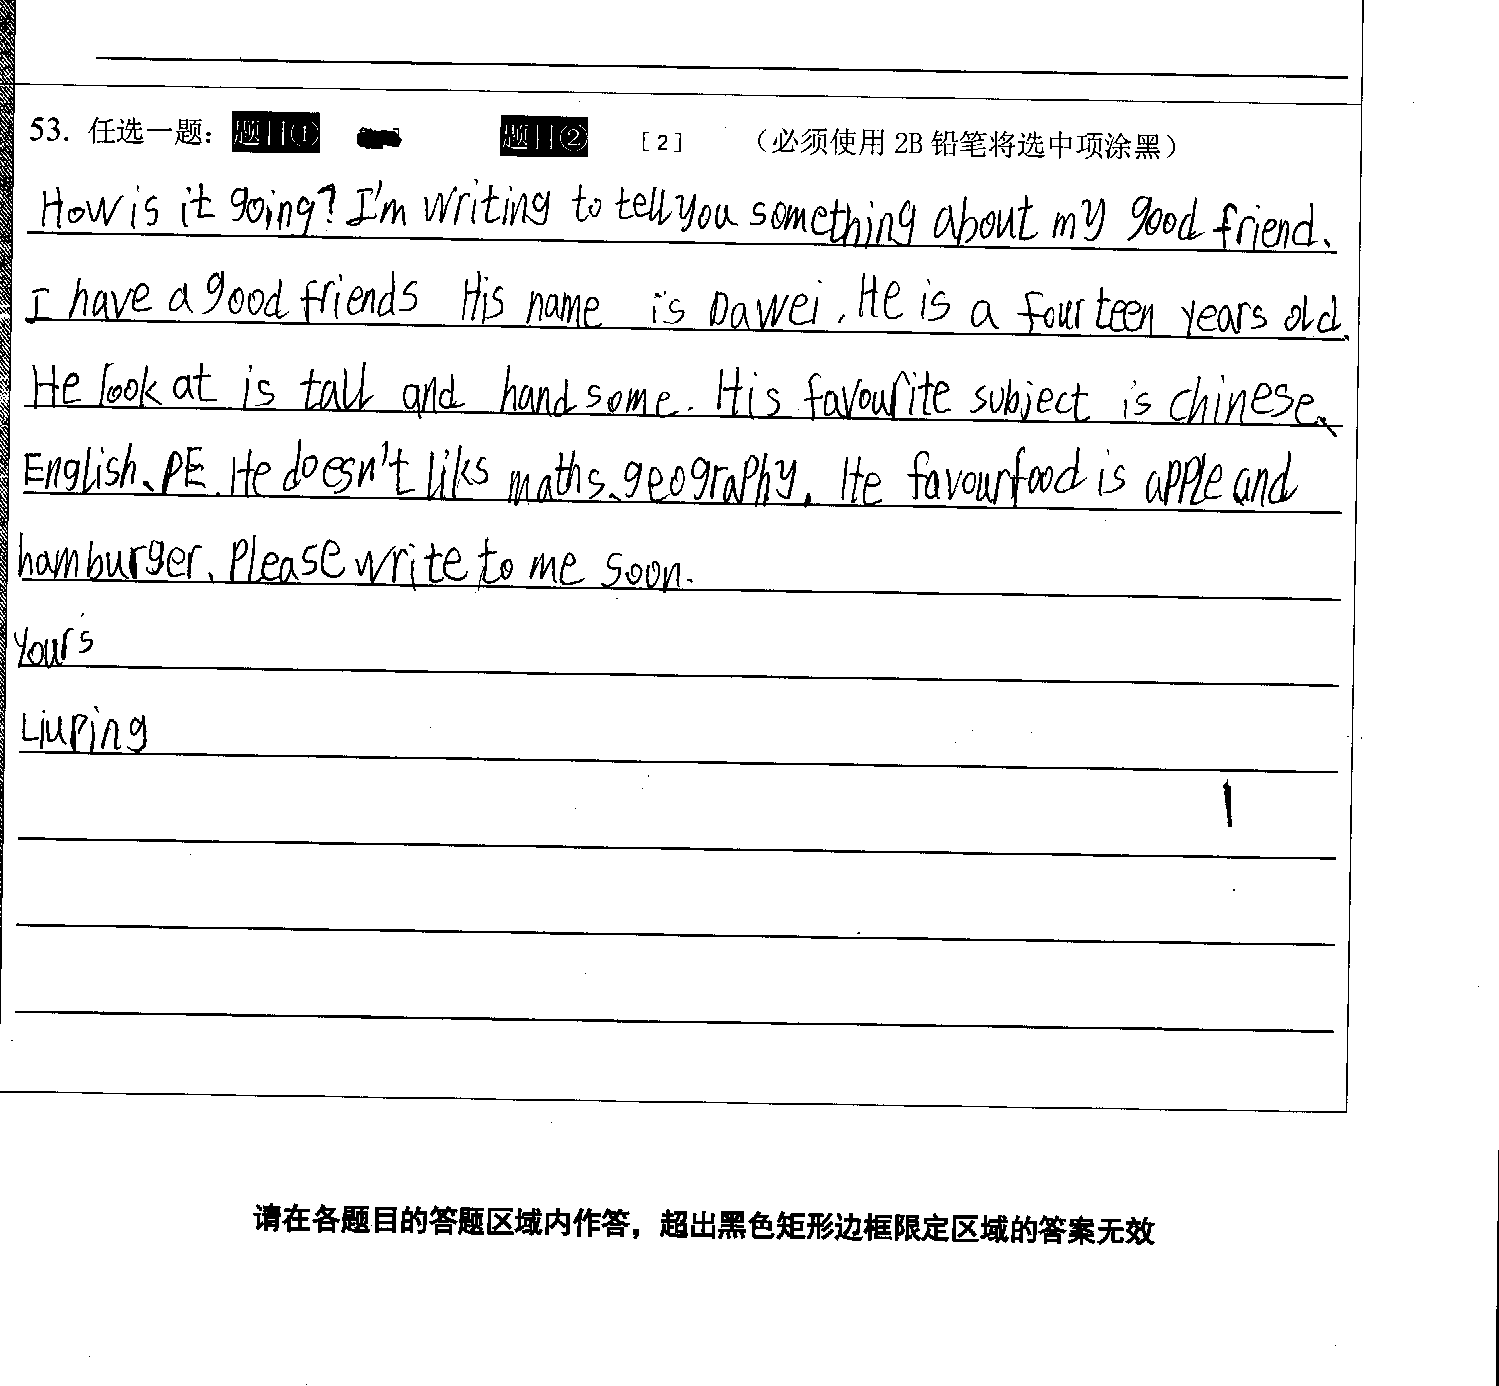 53. 任选一题： 题目① 题目② [2] （必须使用 2B 铅笔将选中项涂黑）
How is it going? I'm writing to tell you something about my good friend.
I have a good friends His name is Dawei. He is a fourteen years old.
He look at is tall and handsome. His favourite subject is chinese、
English、PE. He doesn't liks maths、geography. He favourfood is apple and
hamburger. Please write to me soon.
Yours
Liuping
请在各题目的答题区域内作答，超出黑色矩形边框限定区域的答案无效